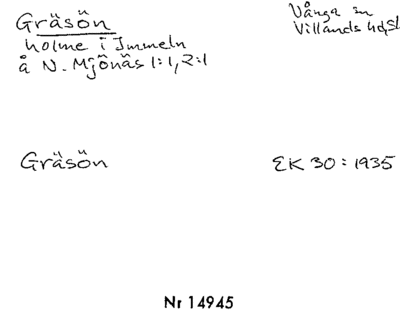 Gräsön
holme i Immeln
å N. Mjönäs 1:1, 2:1
Vånga sn
Villands hd, Sk
Gräsön
EK 30:1935
Nr 14945